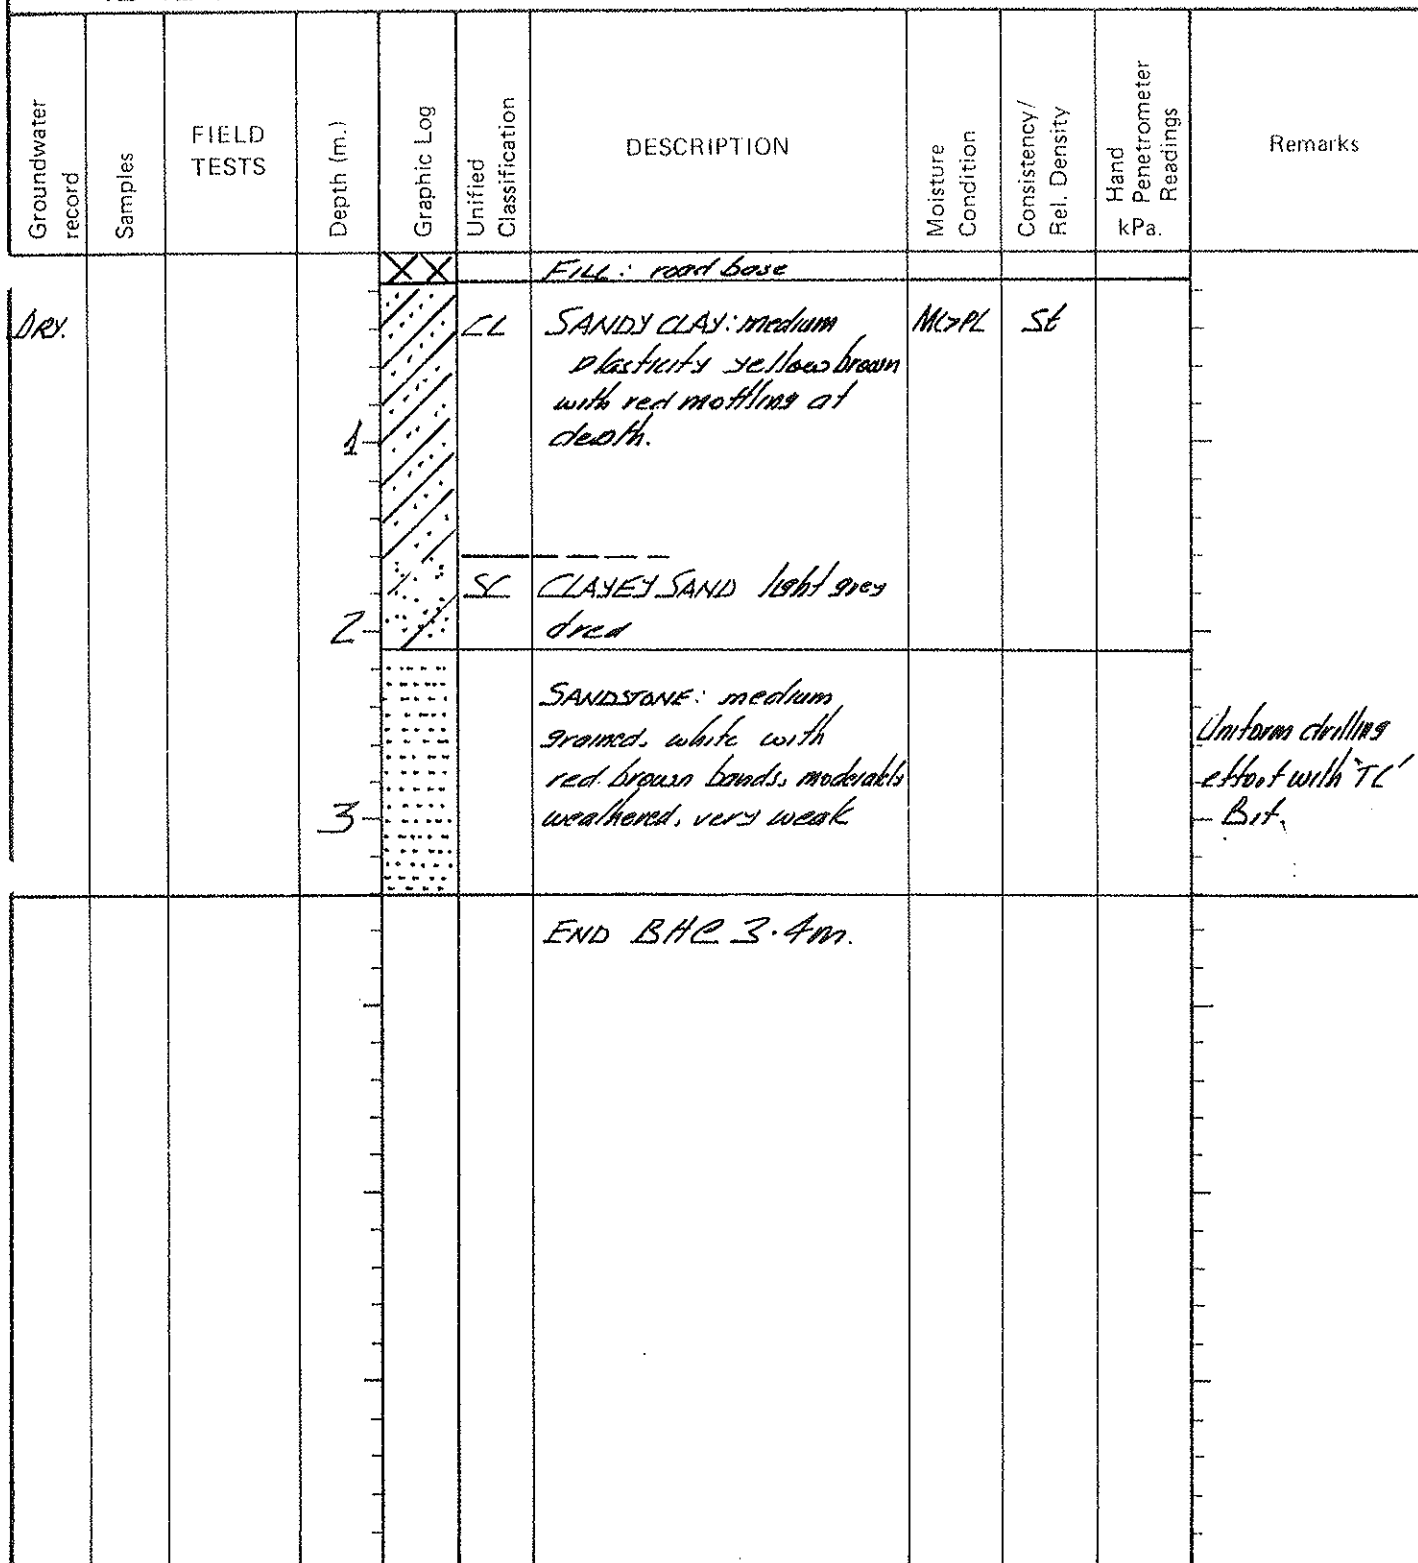 Groundwater record
Samples
FIELD
TESTS
Depth (m.)
Graphic Log
Unified
Classification
DESCRIPTION
Moisture
Condition
Consistency/
Rel. Density
Hand
Penetrometer
Readings
kPa.
Remarks
FILL: road base
DRY.
CL
SANDY CLAY: medium
plasticity yellow brown
with red mottling at
depth.
MC>PL
St
1
SC
CLAYEY SAND light grey
&red
2
SANDSTONE: medium
grained, white with
red brown bands, moderately
weathered, very weak
3
Uniform drilling
effort with 'TC'
Bit.
END BH@ 3.4m.